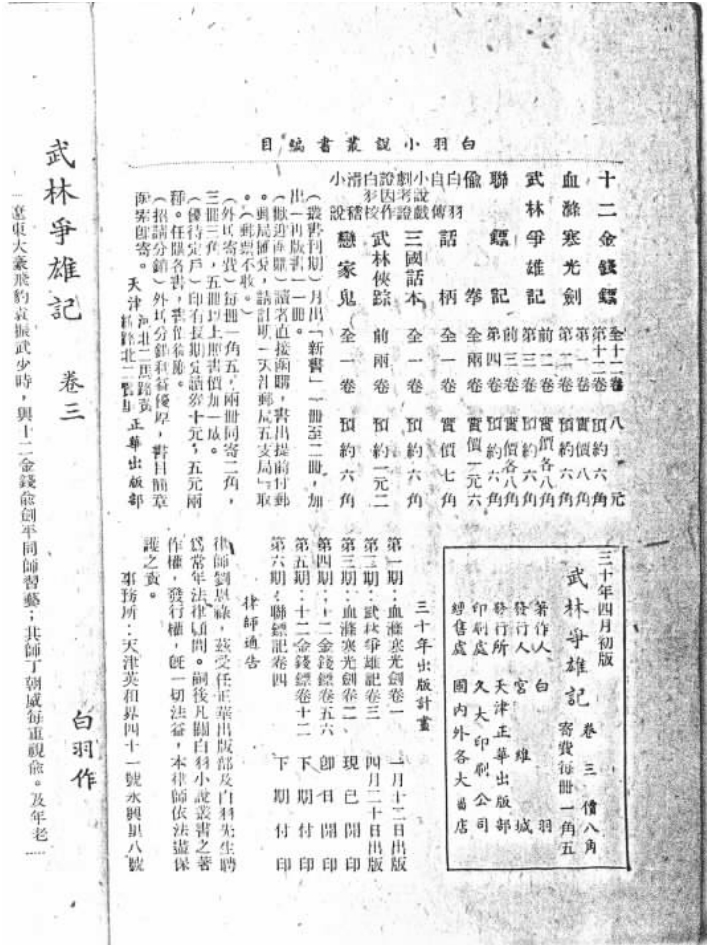 白羽小說叢書編目
十二金錢鏢 全十二卷 八元
第十二卷 預約六角
血滌寒光劍 第一卷 實價八角
第二卷 預約六角
武林爭雄記 前二卷 實價各八角
第三卷 預約六角
聯鏢記 前三卷 實價各八角
第四卷 預約六角
偷拳 全兩卷 實價一元六
白羽自傳 話柄 全一卷 實價七角
小說戲劇考證 三國話本 全一卷 預約六角
證因作白羽校 武林俠踪 前兩卷 預約一元二
滑稽小說 戀家鬼 全一卷 預約六角
(叢書刊期)月出「新書」一冊至二冊,加
出「再版書」一冊。
(歡迎函購)讀者直接函購,書出提前付郵
。郵局匯兌,請註明「天津郵局五支局」取
。(郵票不收。)
(外埠寄費)每冊一角五,兩冊同寄二角,
三冊三角,五冊以上照書價加一成。
(優待定戶)印有長期定讀券十元,五元兩
種。任購各書,
(招請分銷)外埠分銷利益優厚,書目簡章
函索即寄。
天津 河北二馬路
正華出版部
三十年四月初版
武林爭雄記 卷三 價八角
寄費每冊一角五
著作人 白羽
發行人 宮雄城
發行所 天津正華出版部
印刷處 久大印刷公司
經售處 國內外各大書店
三十年出版計畫
第一期:血滌寒光劍卷一 一月十二日出版
第二期:武林爭雄記卷三 四月二十日出版
第三期:血滌寒光劍卷二 現已開印
第四期:十二金錢鏢卷五六 即日開印
第五期:十二金錢鏢卷十二 下期付印
第六期:聯鏢記卷四 下期付印
律師通告
律師劉恩祿,茲受任正華出版部及白羽先生聘
為常年法律顧問。嗣後凡關白羽小說叢書之著
作權,發行權,既一切法益,本律師依法盡保
護之責。
事務所:天津英租界四十一號永興里八號
武林爭雄記 卷三 白羽作
…遼東大豪飛豹袁振武少時,與十二金錢俞劍平同師習藝;其師丁朝威每重視俞。及年老……